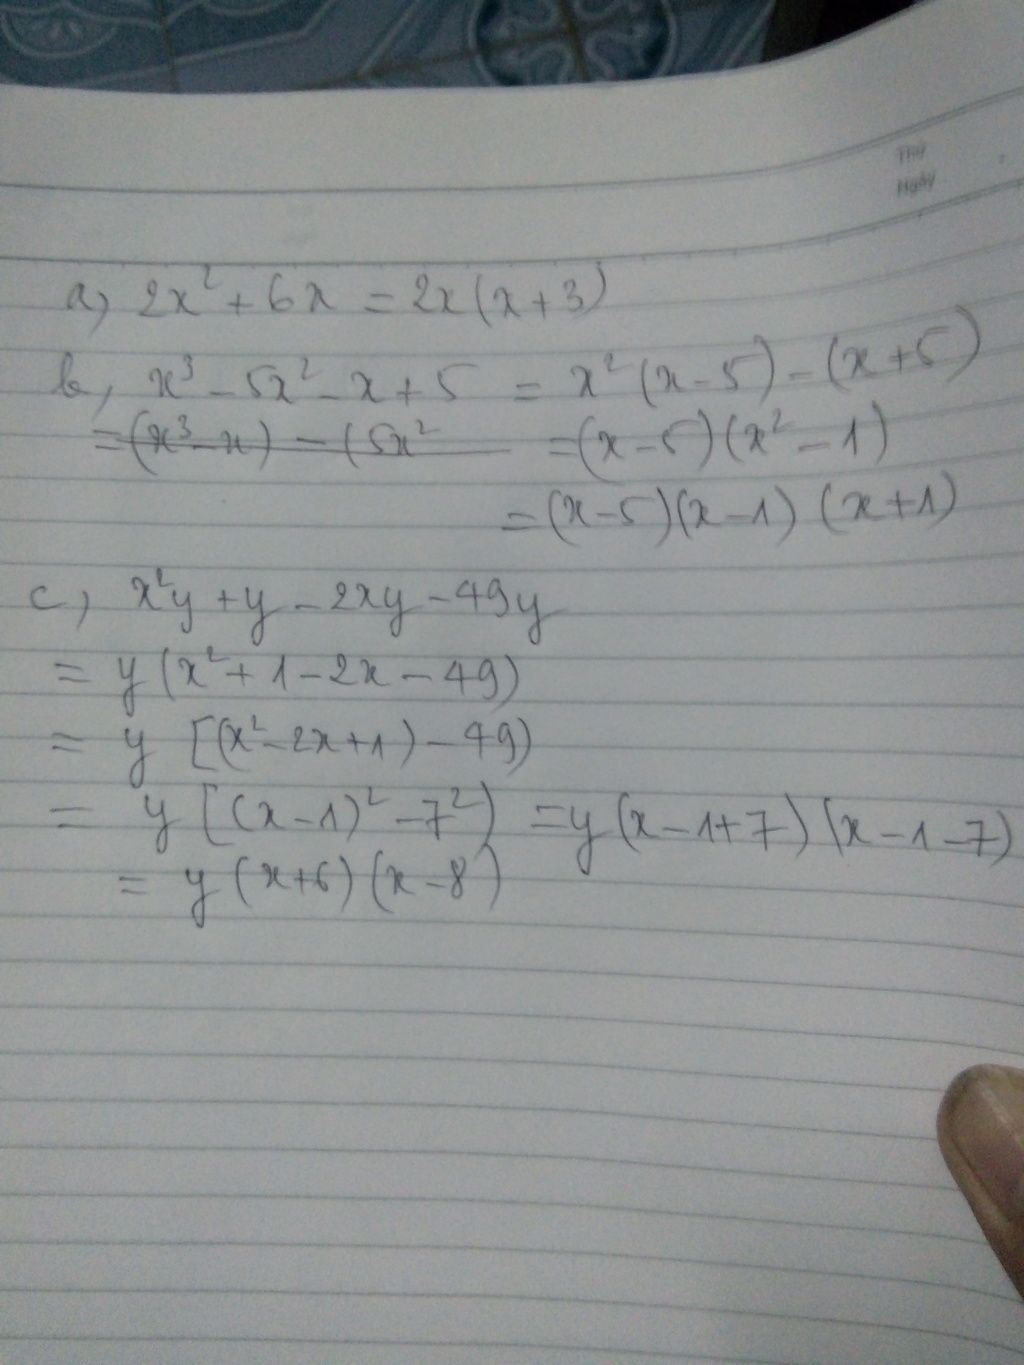 Thứ
Ngày
a, 2x² + 6x = 2x(x+3)
b, x³ - 5x² - x + 5 = x²(x-5) - (x+5)
=(x³-x) - (5x² =(x-5)(x²-1)
=(x-5)(x-1) (x+1)
c, x²y + y - 2xy - 49y
= y (x² + 1 - 2x - 49)
= y [(x²-2x+1) - 49)
= y [(x-1)² - 7²) = y (x-1+7) (x-1-7)
= y (x+6) (x-8)